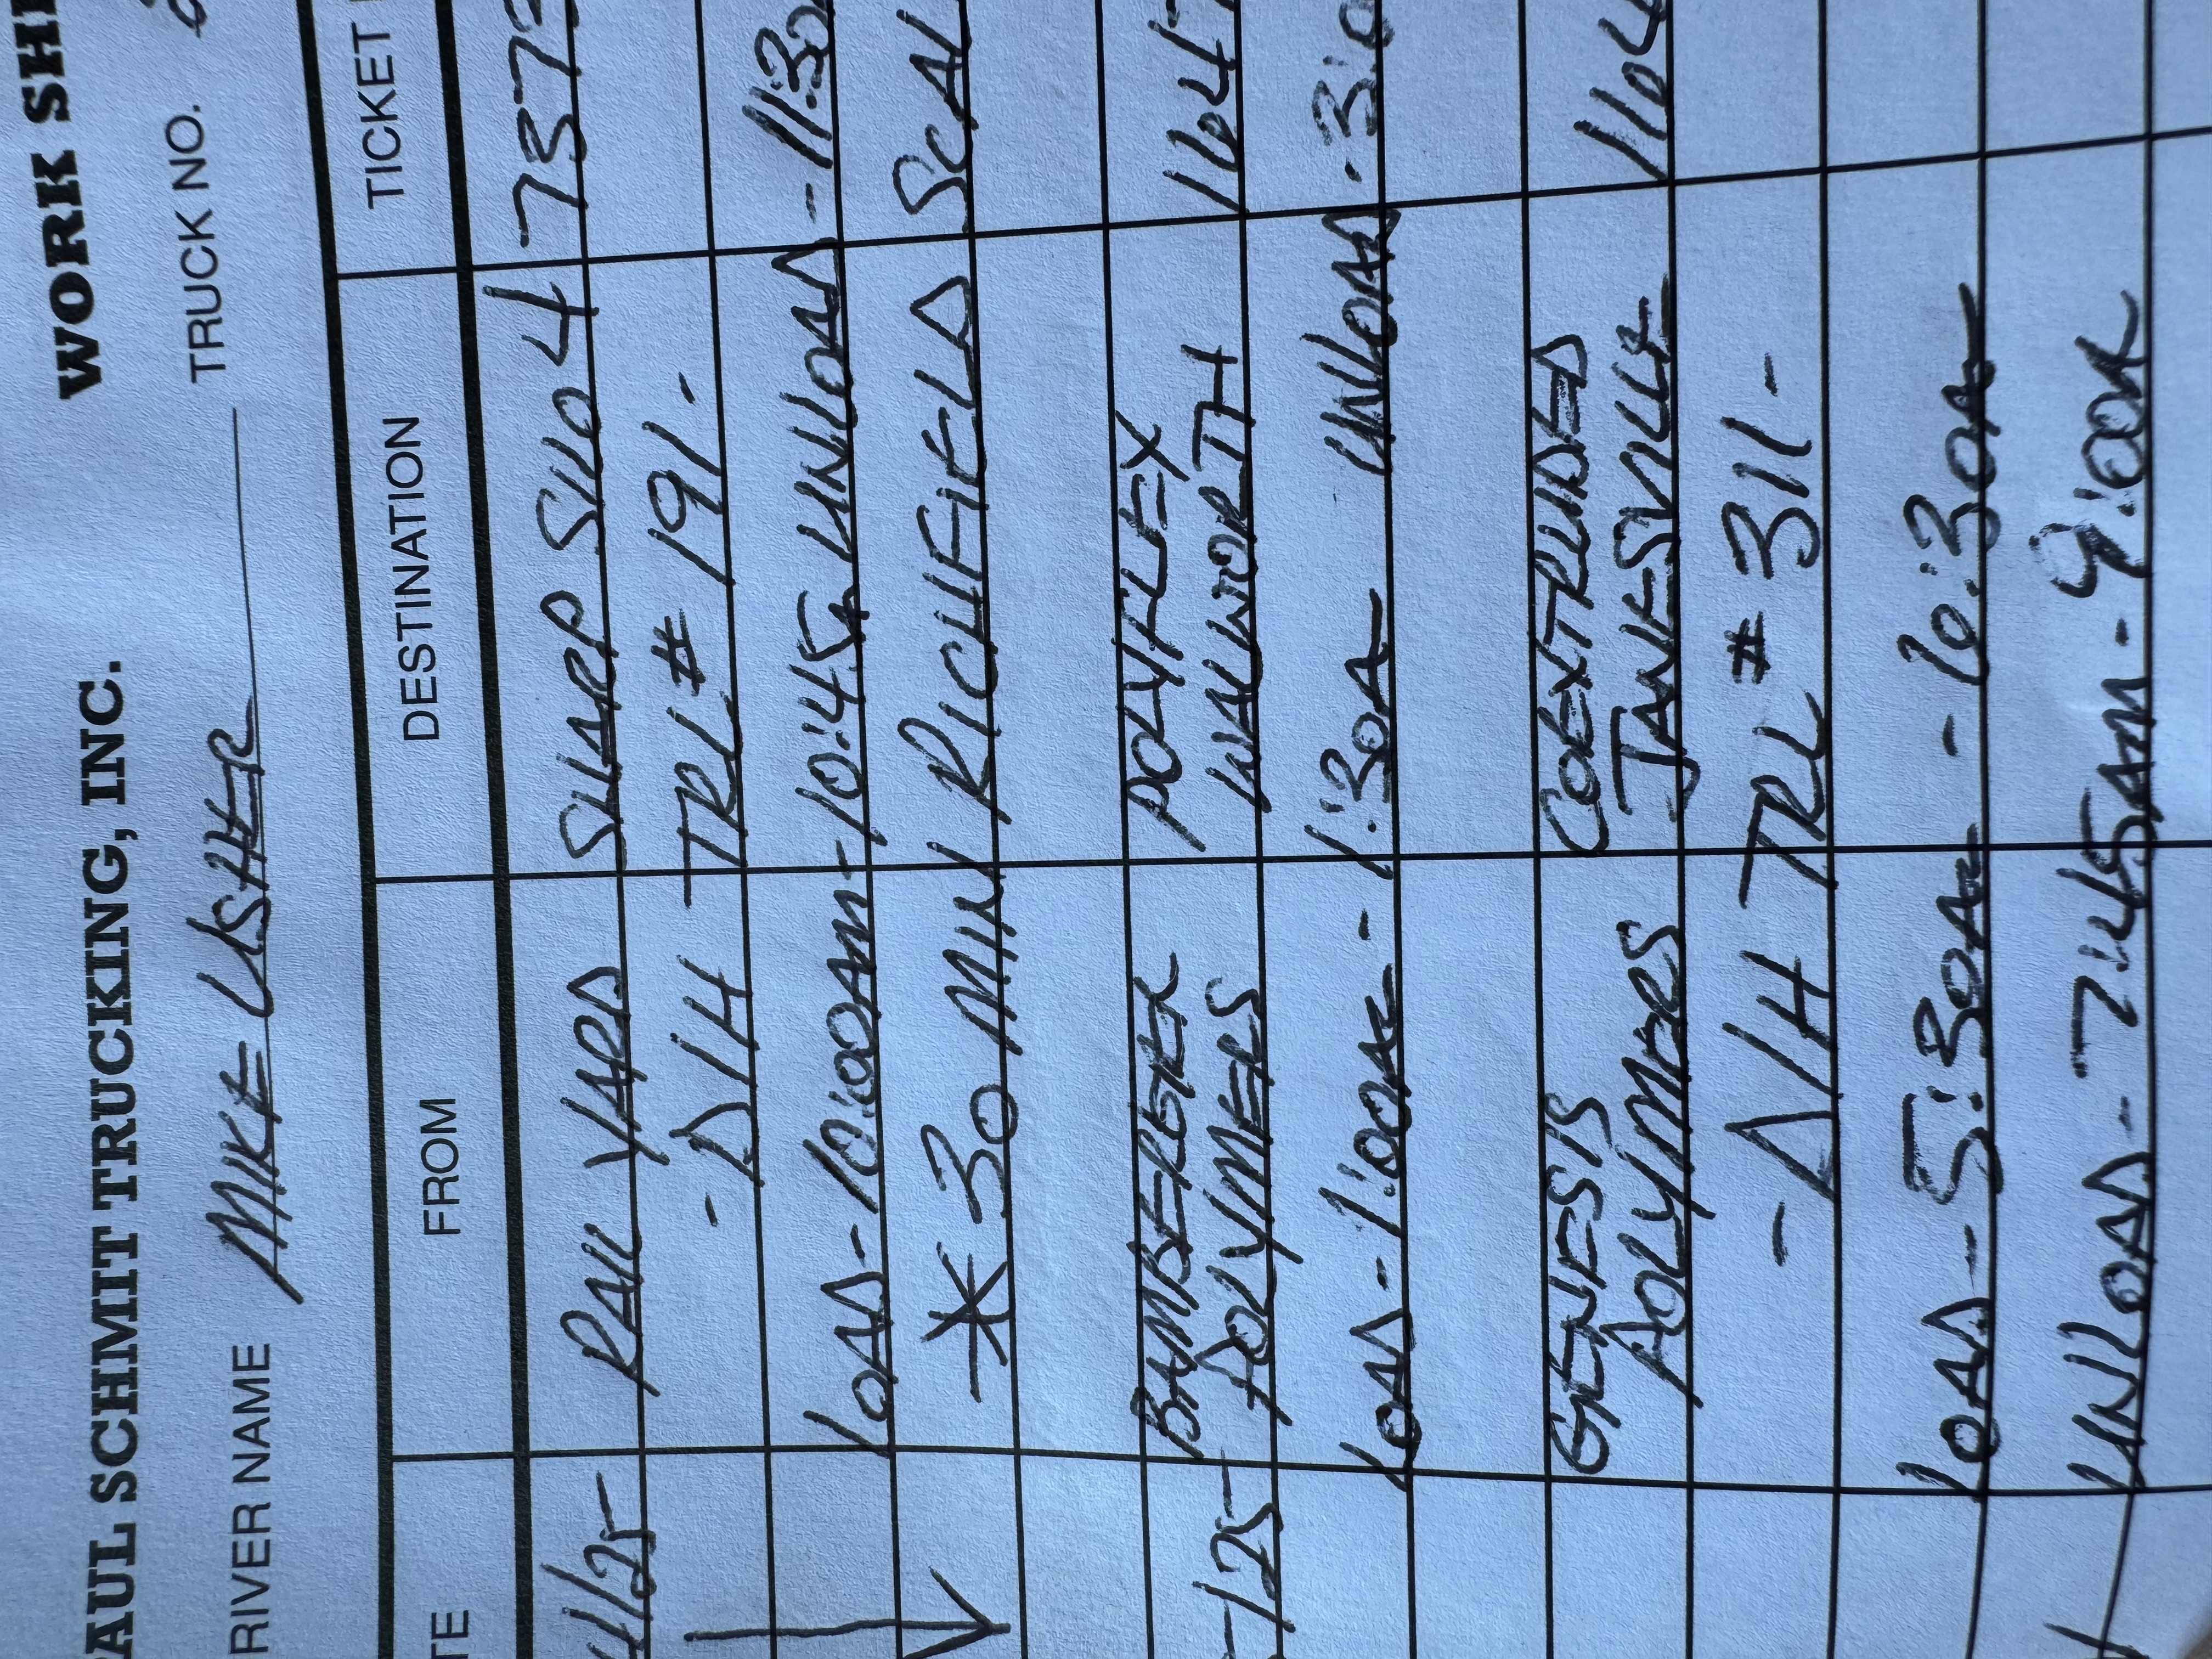 AUL SCHMIT TRUCKING, INC. WORK SH
RIVER NAME MIKE USHER TRUCK NO.
TE FROM DESTINATION TICKET
4/25 RAIL YARD SHARP SILO 4 7373
- D/H TRL # 191 -
LOAD - 10:00AM - 10:45A UNLOAD - 11:30
* 30 MIN RICHFIELD SCAL
-125 BAMBERGER POLYFLEX
POLYMERS WALWORTH 1104
LOAD - 1:00A - 1:30A UNLOAD - 3:0
GENESIS COEXTRUDED
POLYMERS JANESVILLE 1104
- D/H TRL # 311 -
LOAD - 5:30A - 10:30A
UNLOAD - 7:45AM - 9:00A